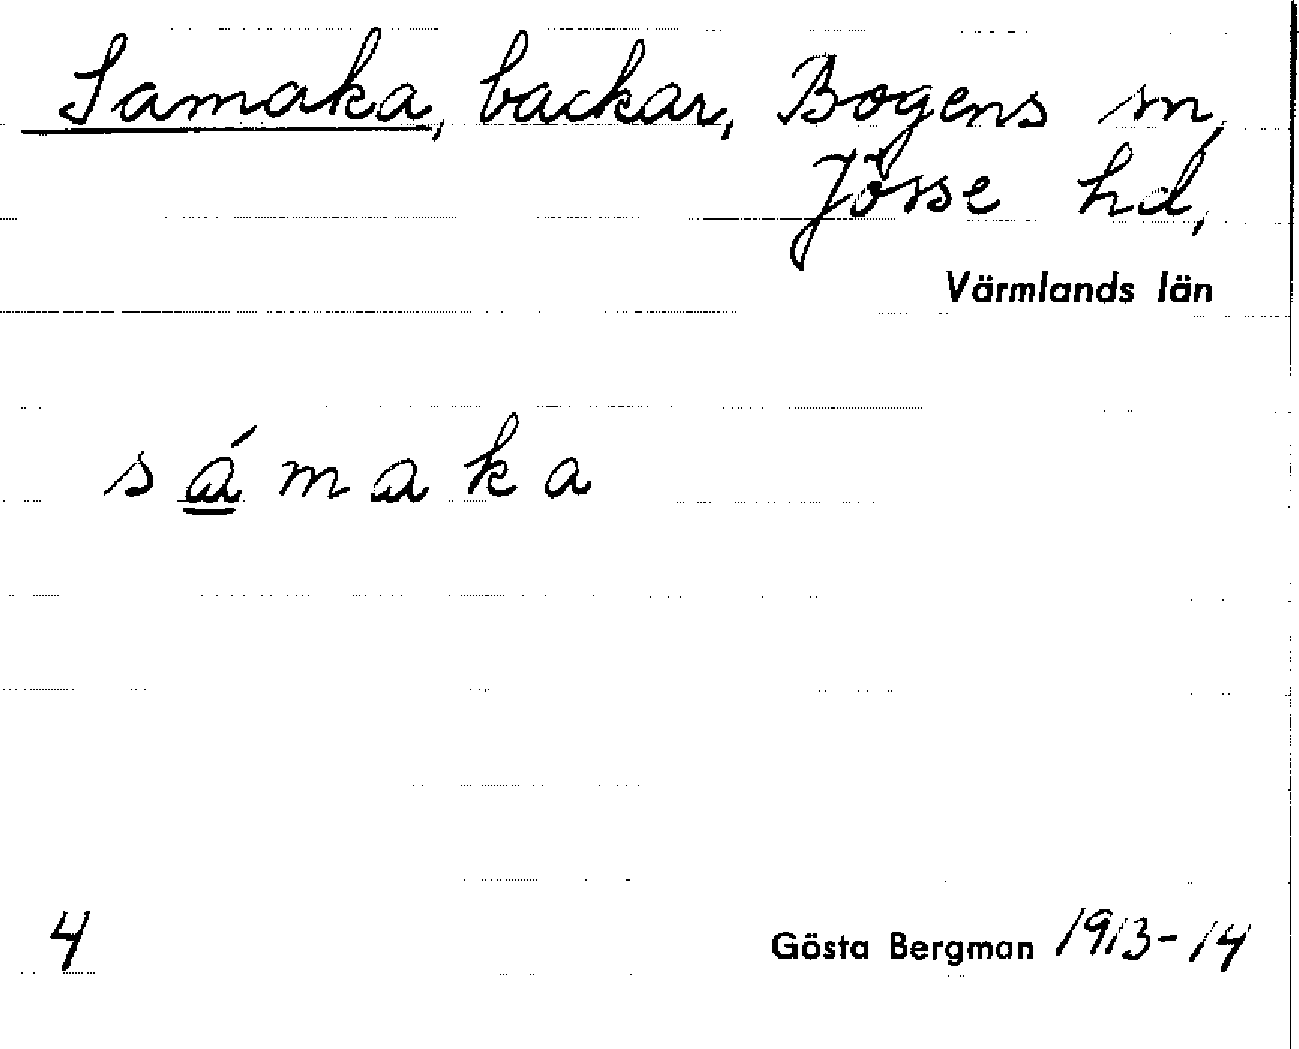 Samaka, backar, Bogens sn,
Jösse hd,
Värmlands län
s á m a k a
4 Gösta Bergman 1913-14